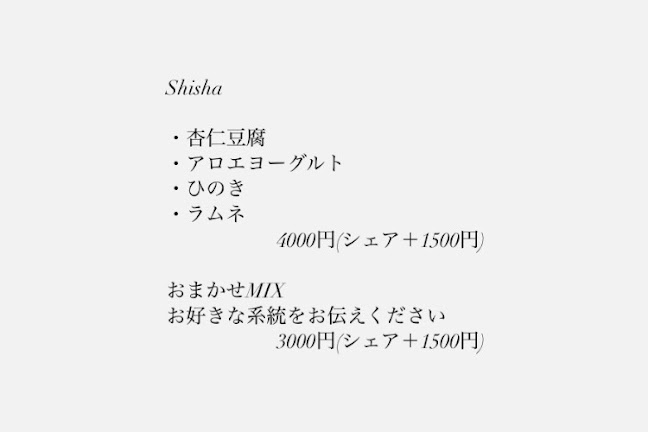 Shisha
・杏仁豆腐
・アロエヨーグルト
・ひのき
・ラムネ
4000円(シェア＋1500円)
おまかせMIX
お好きな系統をお伝えください
3000円(シェア＋1500円)